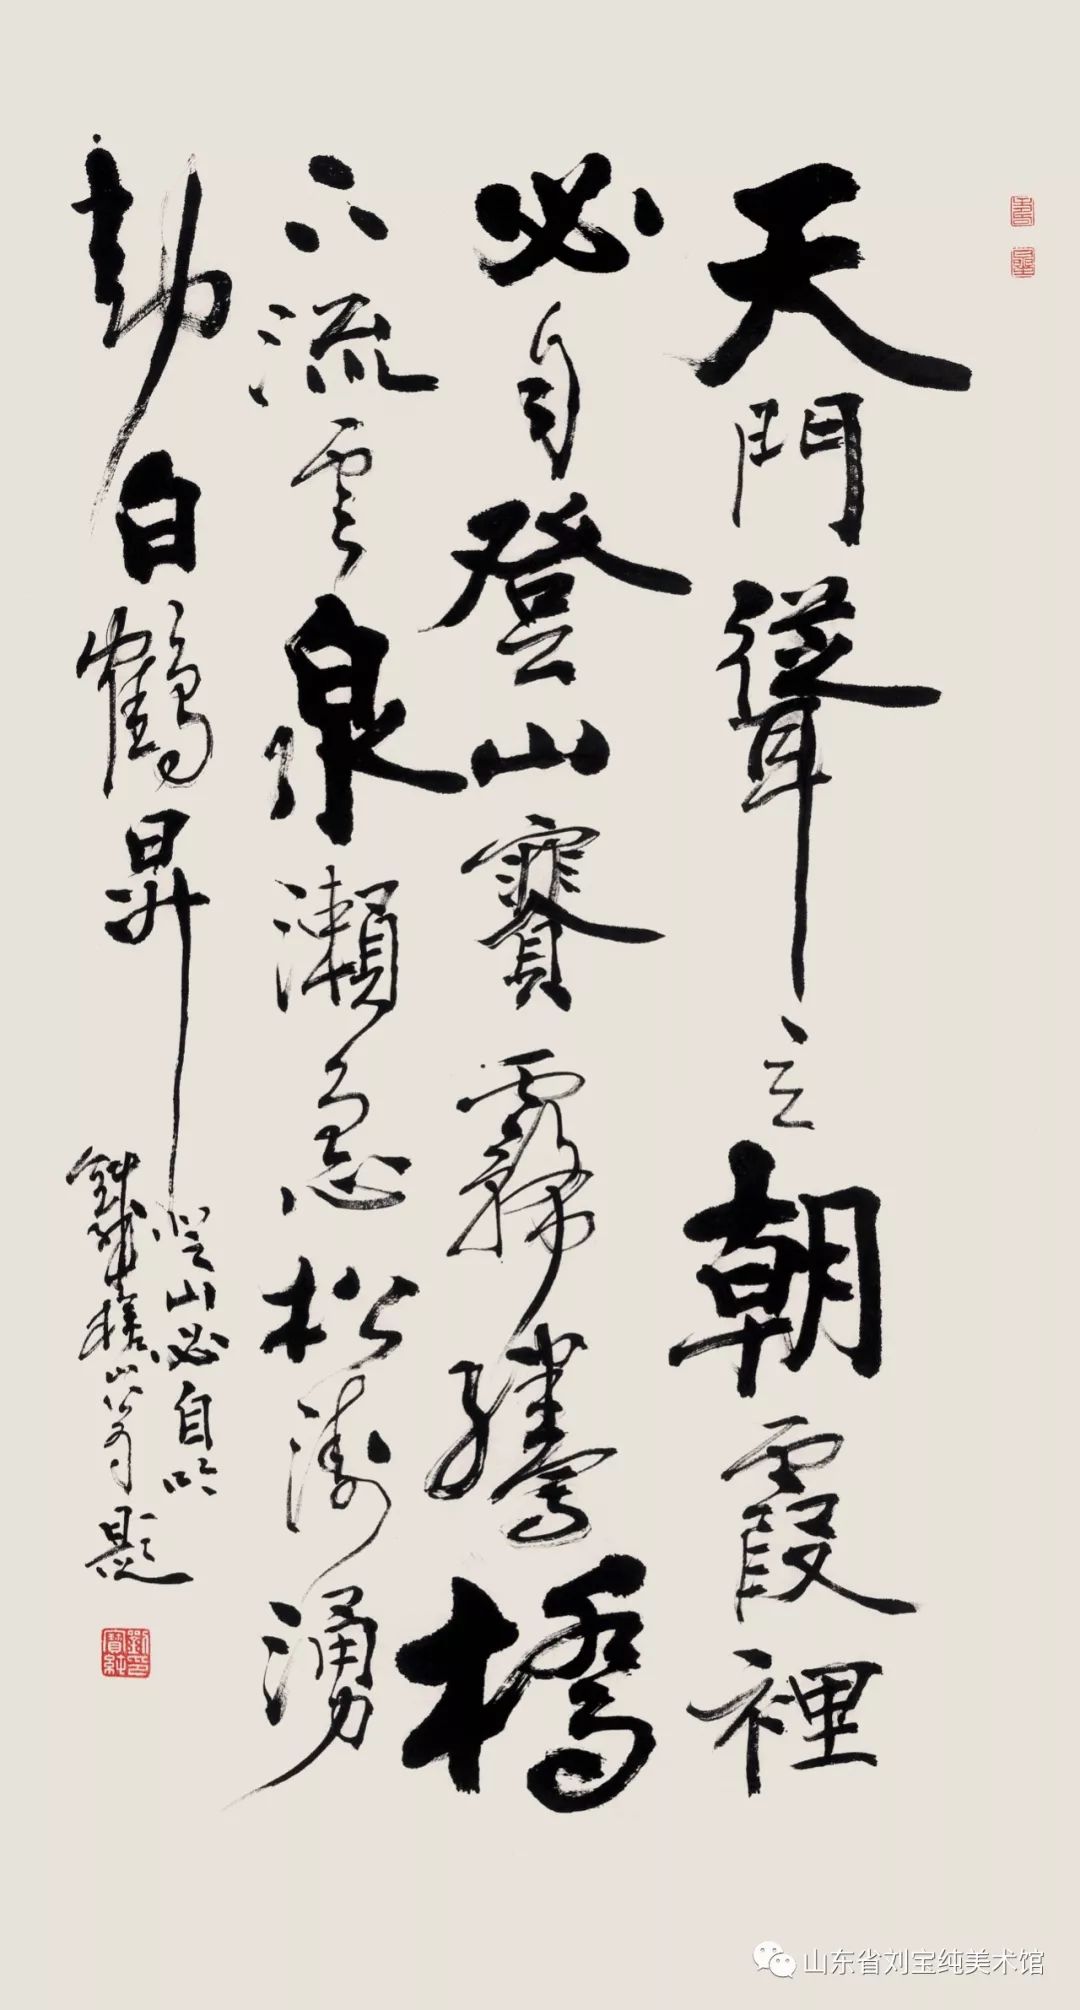 天門聳立朝霞裡
必自登山賽霧騰橋
下流雲泉瀨急松濤湧
動白鶴昇
登山必自吟
鐵槎山翁題
山东省刘宝纯美术馆